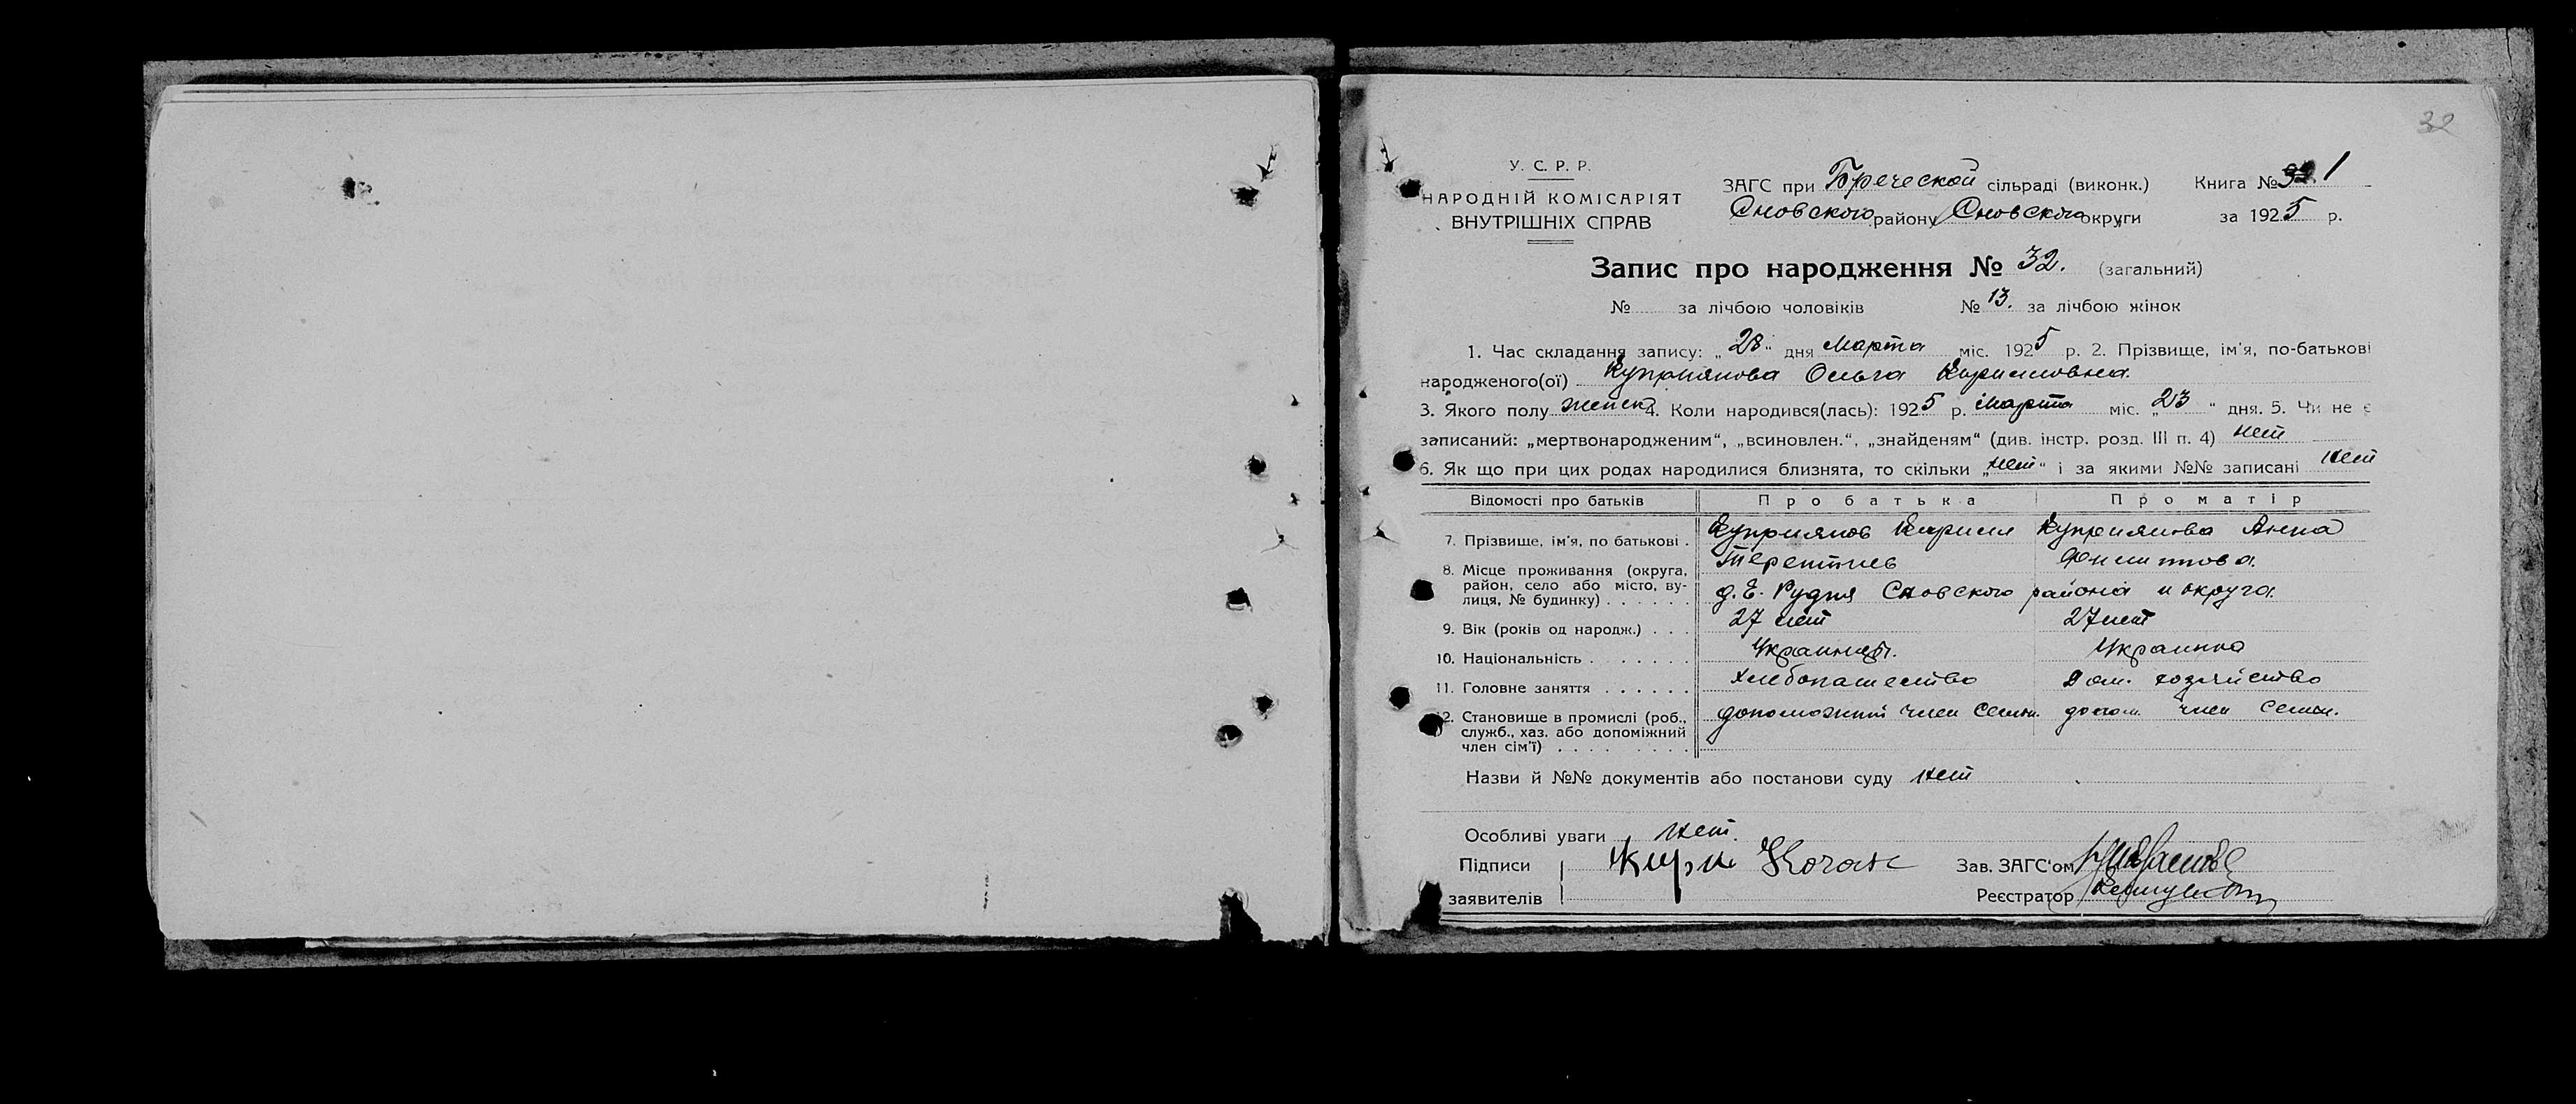 32
У. С. Р. Р.
НАРОДНІЙ КОМІСАРІЯТ
ВНУТРІШНІХ СПРАВ
ЗАГС при Бреческой сільраді (виконк.) Книга № 1
Сновского району Сновского округи за 1925 р.
Запис про народження № 32. (загальний)
№ за лічбою чоловіків № 13. за лічбою жінок
1. Час складання запису: „28“ дня Марта міс. 1925 р. 2. Прізвище, ім'я, по-батькові
народженого(ої) Куприянова Ольга Кириловна.
3. Якого полу женск 4. Коли народився(лась): 1925 р. Марта міс. „23“ дня. 5. Чи не є
записаний: „мертвонародженим“, „всиновлен.“, „знайденям“ (див. інстр. розд. III п. 4) нет
6. Як що при цих родах народилися близнята, то скільки „нет“ і за якими №№ записані нет
Відомості про батьків Про батька Про матір
7. Прізвище, ім'я, по батькові . Куприянов Кирилл Куприянова Анна
Терентиев
8. Місце проживання (округа,
район, село або місто, ву-
лиця, № будинку) . . . . . . д. Е. Рудня Сновского района и округа.
9. Вік (років од народж.) . . . 27 лет 27 лет
10. Національність . . . . . . . Украинец. Украинка
11. Головне заняття . . . . . . Хлебопашество Дом. хозяйство
12. Становище в промислі (роб.,
служб., хаз. або допоміжний
член сім'ї) . . . . . . . . допоможний член семьи. допом. член семьи.
Назви й №№ документів або постанови суду нет
Особливі уваги нет.
Підписи
заявителів
Зав. ЗАГС'ом
Реєстратор